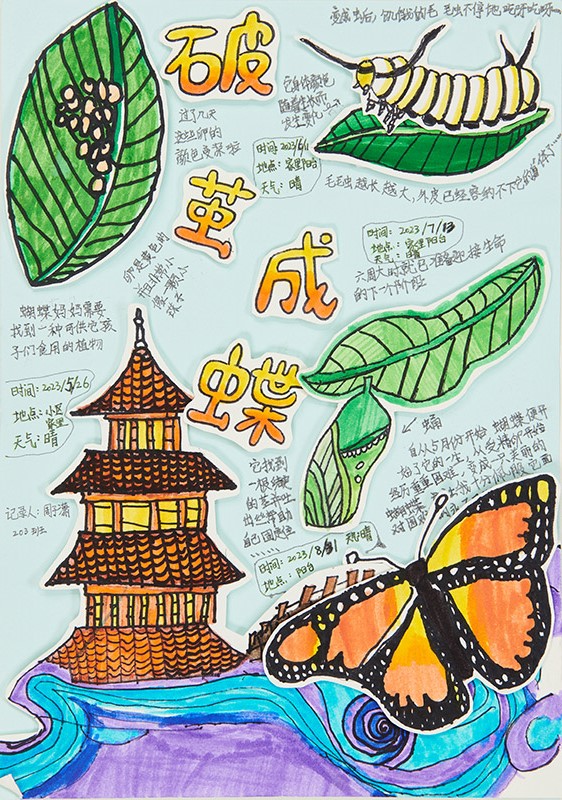 破
茧
成
蝶
变成虫后,饥饿的毛毛虫不停地吃呀吃呀……
它身体颜色
随着生长而
发生变化
过了几天
这些卵的
颜色变深啦
时间:2023/6/11
地点:家里阳台
天气:晴
毛毛虫越长越大,外皮已经容纳不下它的身体了……
时间:2023/7/13
地点:家里阳台
天气:晴
六周大时就已准备迎接生命
的下一个阶段
卵是黄色的
并且非常小
像一颗小
珠子
蝴蝶妈妈需要
找到一种可供它孩
子们食用的植物
时间:2023/5/26
地点:小区
家里
天气:晴
记录人:周
203班
蛹
自从5月份开始,蝴蝶便开
始了它的一生,从受精卵开始
经历重重困难,变成一只美丽的
蝴蝶
它找到
一根结实
的茎并吐
出丝帮助
自己固定住
时间:2023/8/31 天气:晴
地点:阳台